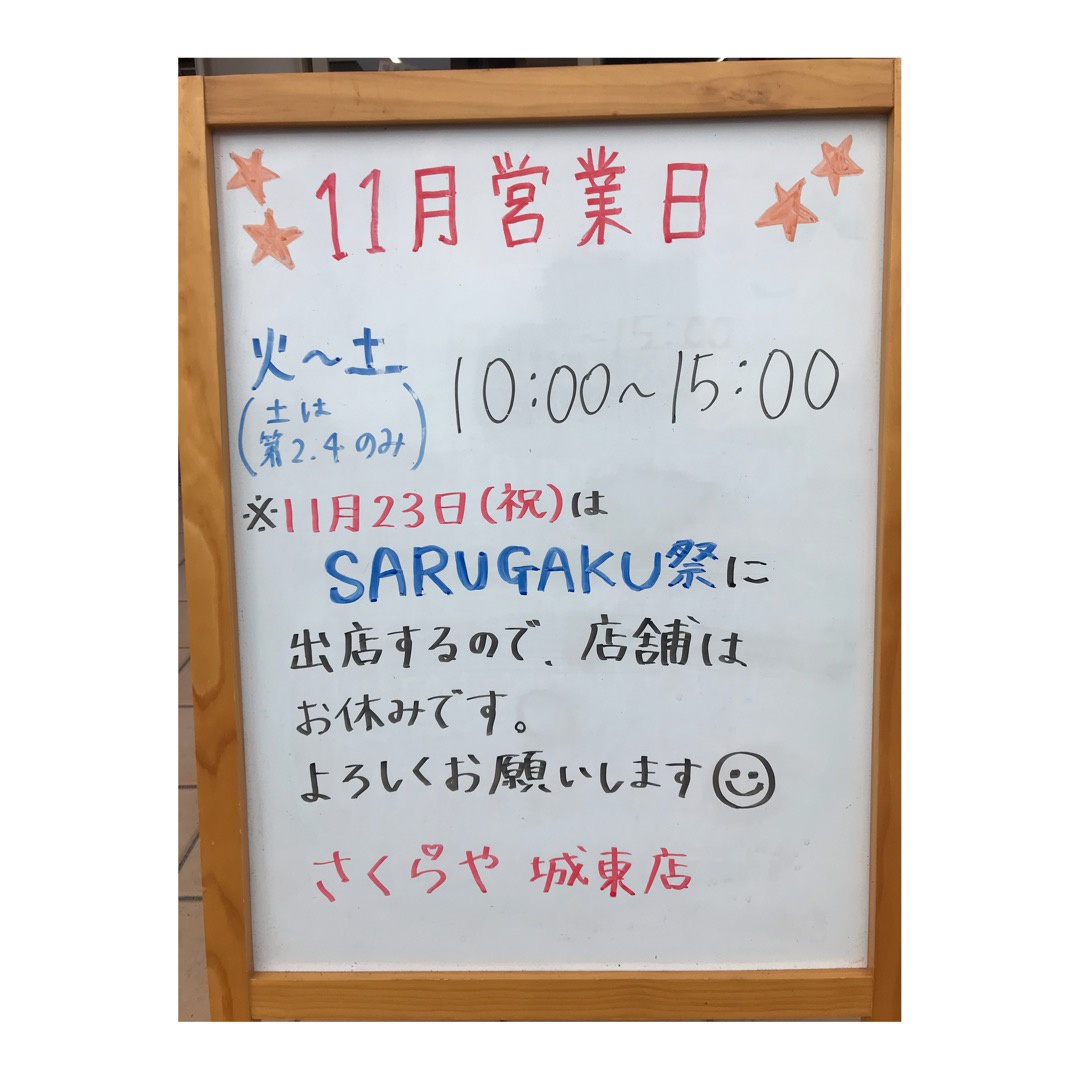 11月営業日
火〜土 10:00〜15:00
(土は
第2.4のみ)
※11月23日(祝)は
SARUGAKU祭に
出店するので、店舗は
お休みです。
よろしくお願いします
さくらや 城東店